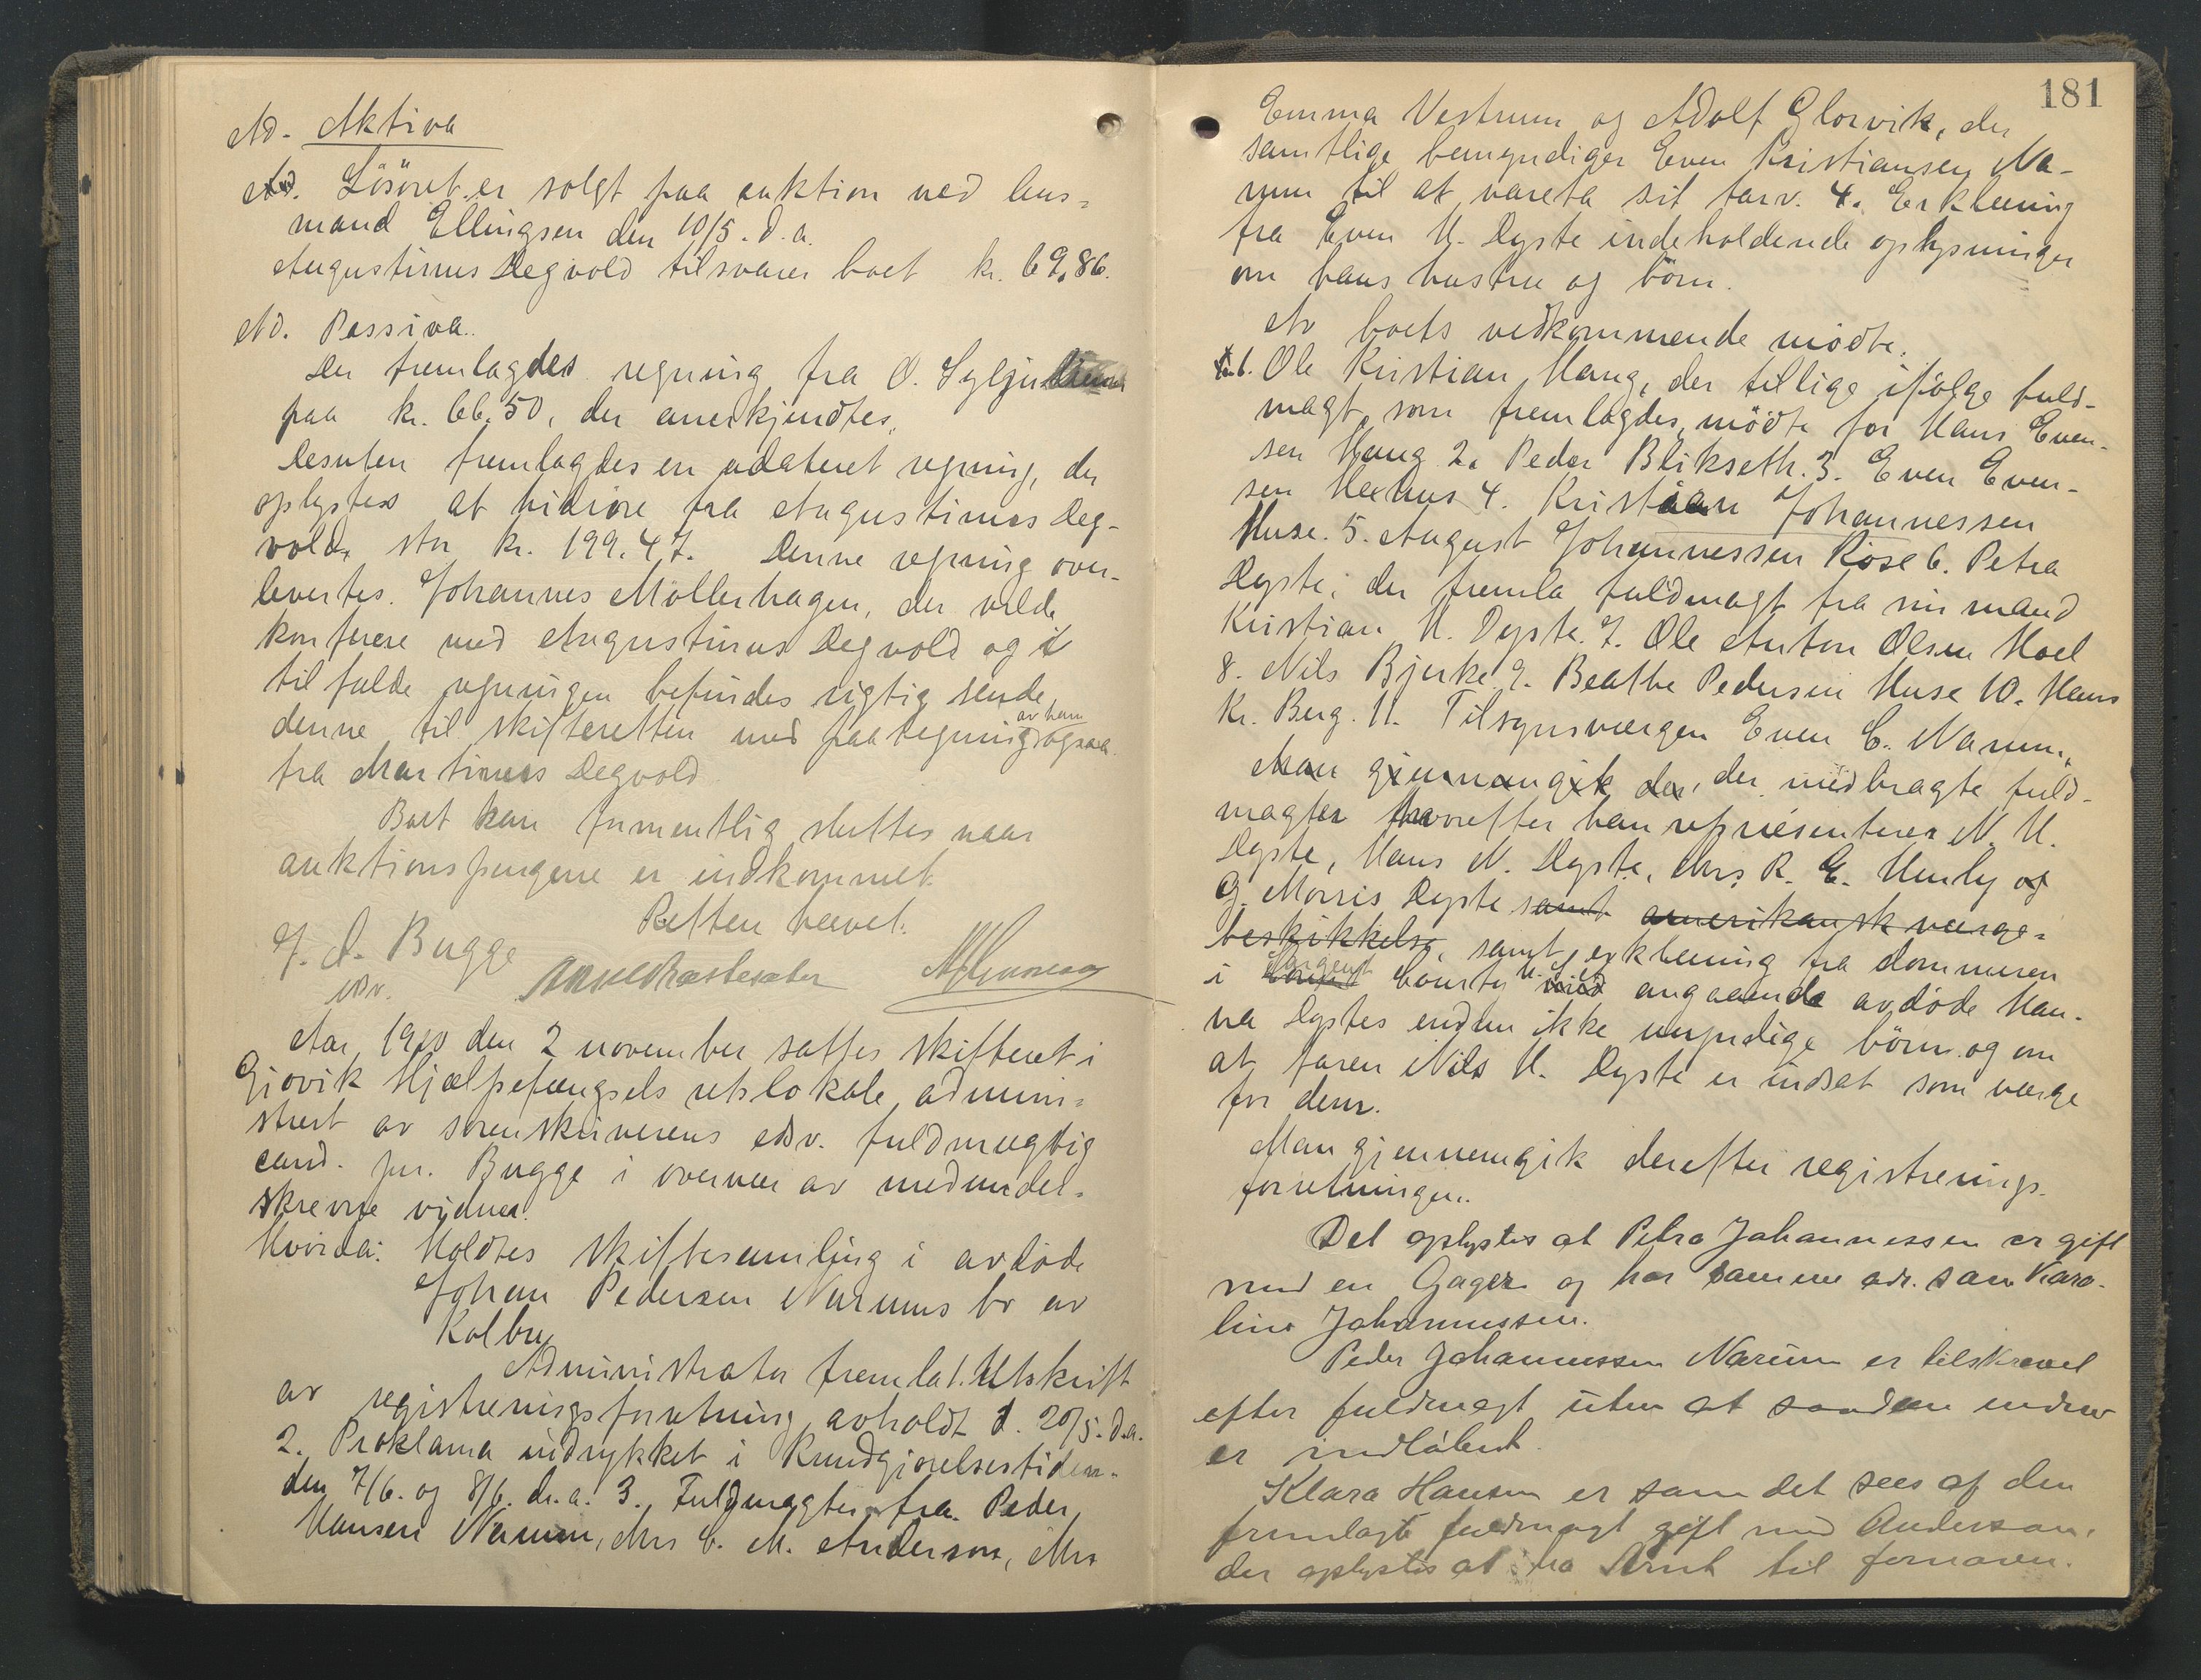 Ad. Aktiva
Ad. Lösöret er solgt paa auktion ved lens=
mand Ellingsen den 10/5. d.a.
Augustinus Degvold tilsvarer boet kr. 69,86.
Ad. Passiva.
Der fremlagdes regning fra O.
paa kr. 66.50, der anerkjendtes.
Desuten fremlagdes en udateret regning, der
oplystes at hidröre fra Augustinus Deg-
vold, stor kr. 199.47. Denne regning over-
levertes Johannes Möllerhagen, der vilde
konferere med Augustinus Degvold og i
tilfælde regningen befindes rigtig sende
denne til skifteretten med paategning av ham ogsaa
fra Martinus Degvold
Boet kan formentlig sluttes naar
auktionspengene er indkommet.
Retten hævet.
J. A. Bugge
edsv.
Aar 1910 den 2 november sattes skifteret i
Gjövik Hjælpefængsels retslokale, admini=
strert av sorenskriverens edsv. fuldmægtig
cand. jur. Bugge i overvær av medunder=
skrevne vidner.
Hvorda: Holdtes skiftesamling i avdöde
Johan Pedersen Narums bo av
Kolbu
Administrator fremla 1. Utskrift
av registreringsforretning avholdt d. 20/5. d.a.
2. Proklama indrykket i Kundgjörelsestiden-
den 7/6. og 8/6. d.a. 3. Fuldmagter fra Peder
Hansen Narum, Mrs C. M. Anderson, Mrs
181
Emma Vestrum og Adolf Glorvik, der
samtlige bemyndiger Even Kristiansen Na-
rum til at vareta sit tarv. 4. Erklæring
fra Even H. Dyste indeholdende oplysninger
om hans hustru og börn.
Av boets vedkommende mödte.
1. Ole Kristian Haug, der tillige ifölge fuld-
magt, som fremlagdes, mödte for Hans Even-
sen Haug 2. Peder Blikseth. 3. Even Even-
sen 4. Kristian Johannessen
Huse. 5. August Johannessen Röse 6. Petra
Dyste, der fremla fuldmagt fra sin mand
Kristian H. Dyste. 7. Ole Anton Olsen Hoel
8. Nils Bjerke 9. Beathe Pedersen Huse 10. Hans
Kr. Berg. 11. Tilsynsværgen Even C. Narum,
Man gjennemgik der, der medbragte fuld-
magter hvorefter han repræsenterer N. H.
Dyste, Hans N. Dyste, Mrs R. E. Henly og
G. Morris Dyste samt amerikansk værge=
beskikkelse, samt erklæring fra dommeren
i Sargent County angaaende avdöde Han-
na Dystes endnu ikke myndige börn og om
at faren Nils H. Dyste er indsat som værge
for dem.
Man gjennemgik derefter registrerings-
forretningen.
Det oplystes at Petra Johannessen er gift
med en Gager og har samme adr. som Karo-
line Johannessen.
Peder Johannessen Narum er tilskrevet
efter fuldmagt uten at saadan endnu
er indlöbet.
Klara Hansen er som det sees af den
fremlagte fuldmagt gift med Anderson,
der oplystes at ha Arnt til fornavn.